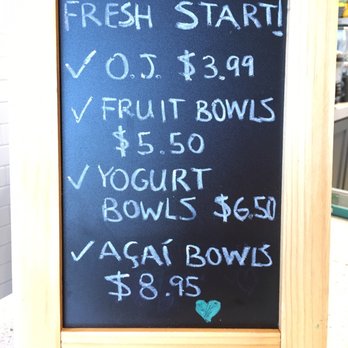 FRESH START!
✓ O.J. $3.99
✓ FRUIT BOWLS
$5.50
✓ YOGURT
BOWLS $6.50
✓ AÇAÍ BOWLS
$8.95